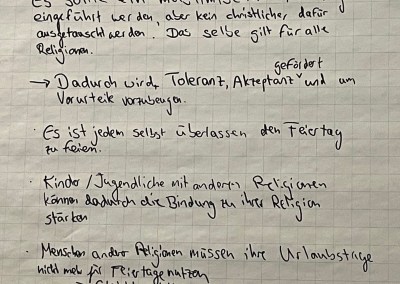 Es sollte ein
eingeführt werden, aber kein christlicher dafür
ausgetauscht werden. Das selbe gilt für alle
Religionen.
gefördert
→ Dadurch wird, Toleranz, Akzeptanz ˅ und um
Vorurteile vorzubeugen.
· Es ist jedem selbst überlassen den Feiertag
zu feiern.
· Kinder / Jugendliche mit anderen Religionen
können dadurch die Bindung zu ihrer Religion
stärken
· Menschen andrer Religionen müssen ihre Urlaubstage
nicht mehr für Feiertage nutzen